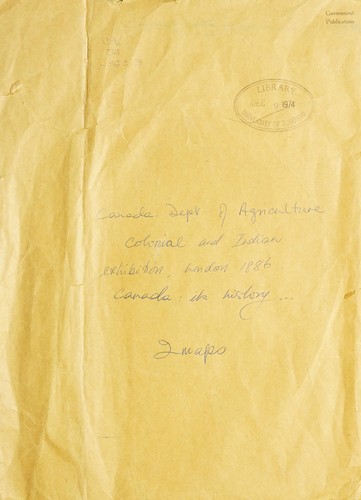 Government
Publications
LIBRARY
DEC 9 1974
UNIVERSITY OF TORONTO
Canada. Dept of Agriculture
Colonial and Indian
exhibition, London 1886
Canada: its history ...
2 maps